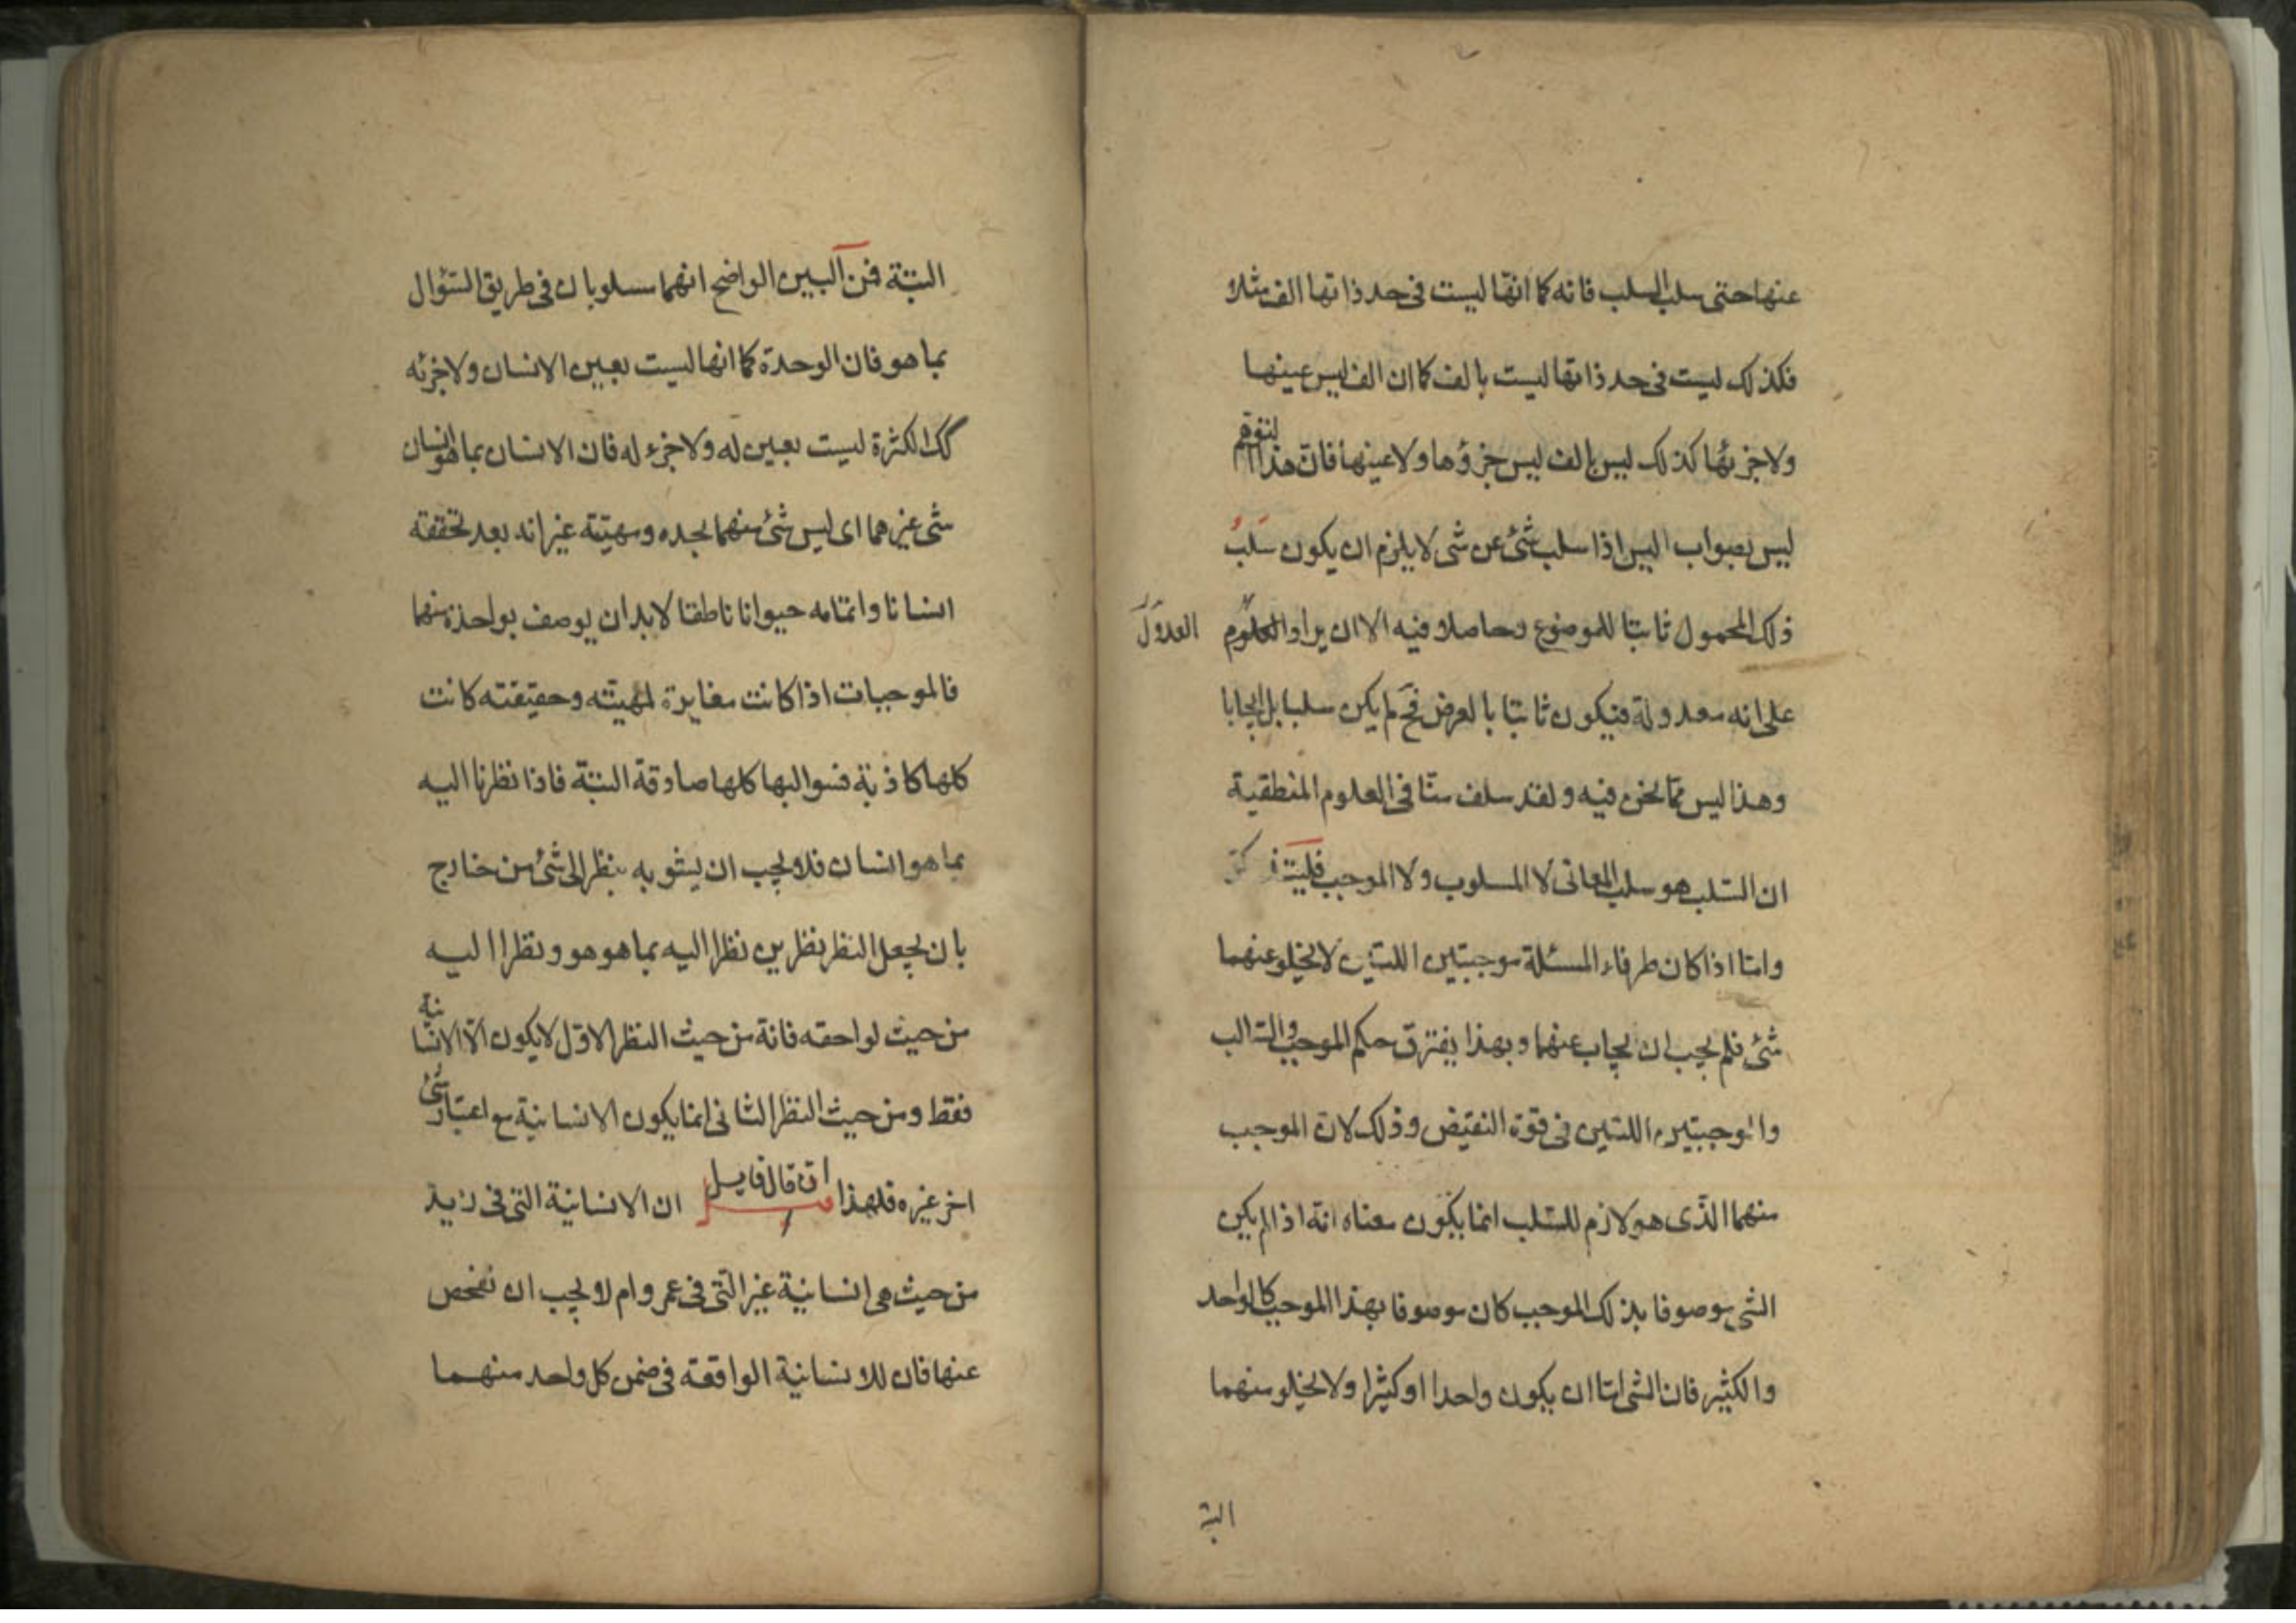 عنها حتى سلب السلب فانه كما انها ليست فى حد ذاتها الف مثلا
فكذلك ليست فى حد ذاتها ليست بالف كما ان الف ليس عينها
ولا جزئها كذلك ليس بالف ليس جزؤها ولا عينها فان هذا التوهم
ليس بصواب اليس اذا سلب شئ عن شى لا يلزم ان يكون سلب
ذلك المحمول ثابتا للموضوع وحاصلا فيه الا ان يراد العدول
على انه معدولة فيكون ثابتا بالعرض فح لم يكن سلبا بل ايجابا
وهذا ليس مما نحن فيه ولقد سلف منا فى العلوم المنطقية
ان السلب هو سلب المعانى لا المسلوب ولا الموجب
واما اذا كان طرفاء المسئلة موجبتين اللتين لا يخلو عنهما
شئ فلم يجب ان يجاب عنهما وبهذا يفترق حكم الموجب والسالب
والموجبتين اللتين فى قوة النقيض وذلك لان الموجب
منهما الذى هو لازم للسلب انما يكون معناه انه اذا لم يكن
الشى موصوفا بذلك الموجب كان موصوفا بهذا الموجب كالواحد
والكثير فان الشى اما ان يكون واحدا او كثيرا ولا يخلو منهما
البتة
البتة فمن البين الواضح انهما مسلوبان فى طريق السؤال
بما هو فان الوحدة كما انها ليست بعين الانسان ولا جزئه
كك الكثرة ليست بعين له ولا جزء له فان الانسان بما هو انسان
شى غيرهما اى ليس شئ منهما بحده ومهيته غير انه بعد تحققه
انسانا واتمامه حيوانا ناطقا لا بد ان يوصف بواحدة منهما
فالموجبات اذا كانت مغايرة لمهيته وحقيقته كانت
كلها كاذبة فسوالبها كلها صادقة البتة فاذا نظرنا اليه
بما هو انسان فلا يجب ان يشوبه بنظر الى شئ من خارج
بان يجعل النظر نظرين نظرا اليه بما هو هو ونظرا اليه
من حيث لواحقه فانه من حيث النظر الاول لا يكون الا الانسانية
فقط ومن حيث النظر الثانى انما يكون الانسانية مع اعتبار شئ
اخر غيره فلهذا ان قال قايل ان الانسانية التى فى زيد
من حيث هى انسانية غير التى فى عمرو ام لا يجب ان نفحص
عنها فان للانسانية الواقعة فى ضمن كل واحد منهما